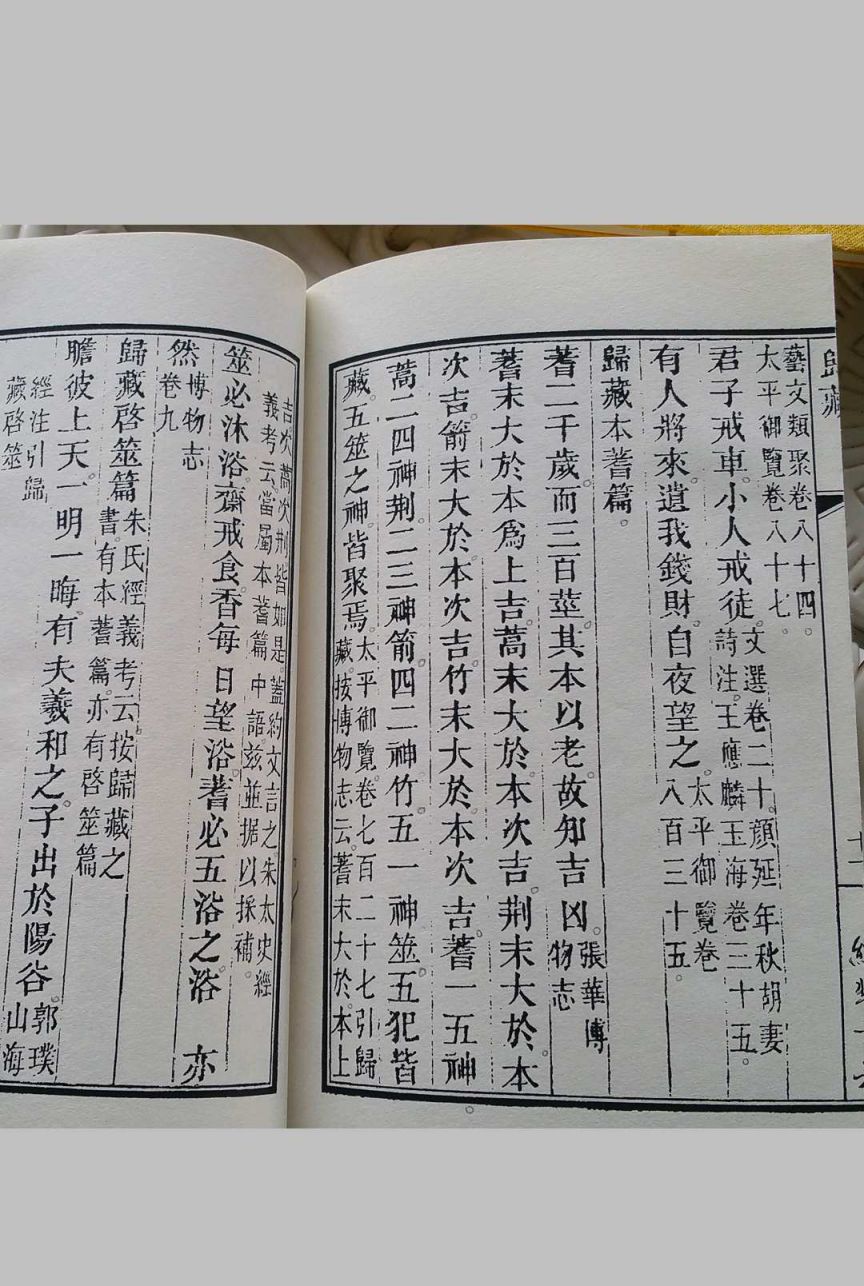 歸藏
藝文類聚卷八十四。
太平御覽卷八十七。
君子戒車。小人戒徒。文選卷二十。顏延年秋胡妻
詩注。王應麟玉海卷三十五。
有人將來。遺我錢財。自夜望之。太平御覽卷
八百三十五。
歸藏本蓍篇。
蓍二千歲而三百莖。其本以老。故知吉凶。張華博
物志
蓍末大於本爲上吉。蒿末大於本次吉。荆末大於本
次吉。箭末大於本次吉。竹末大於本次吉。蓍一五神。
蒿二四神。荆二三神。箭四二神。竹五一神。筮五犯皆
藏。五筮之神皆聚焉。太平御覽卷七百二十七引歸
藏。按博物志云。蓍末大於。本上
吉。次蒿。次荆。皆如是。蓋約文言之。朱太史經
義考云。當屬本蓍篇中語。兹並据以採補。
筮必沐浴。齋戒食香。每日望浴。蓍必五浴之。浴 亦
然博物志
卷九
歸藏啓筮篇朱氏經義考云。按歸藏之
書。有本蓍篇。亦有啓筮篇
瞻彼上天。一明一晦。有夫羲和之子。出於陽谷。郭璞
山海
經注引歸
藏啓筮